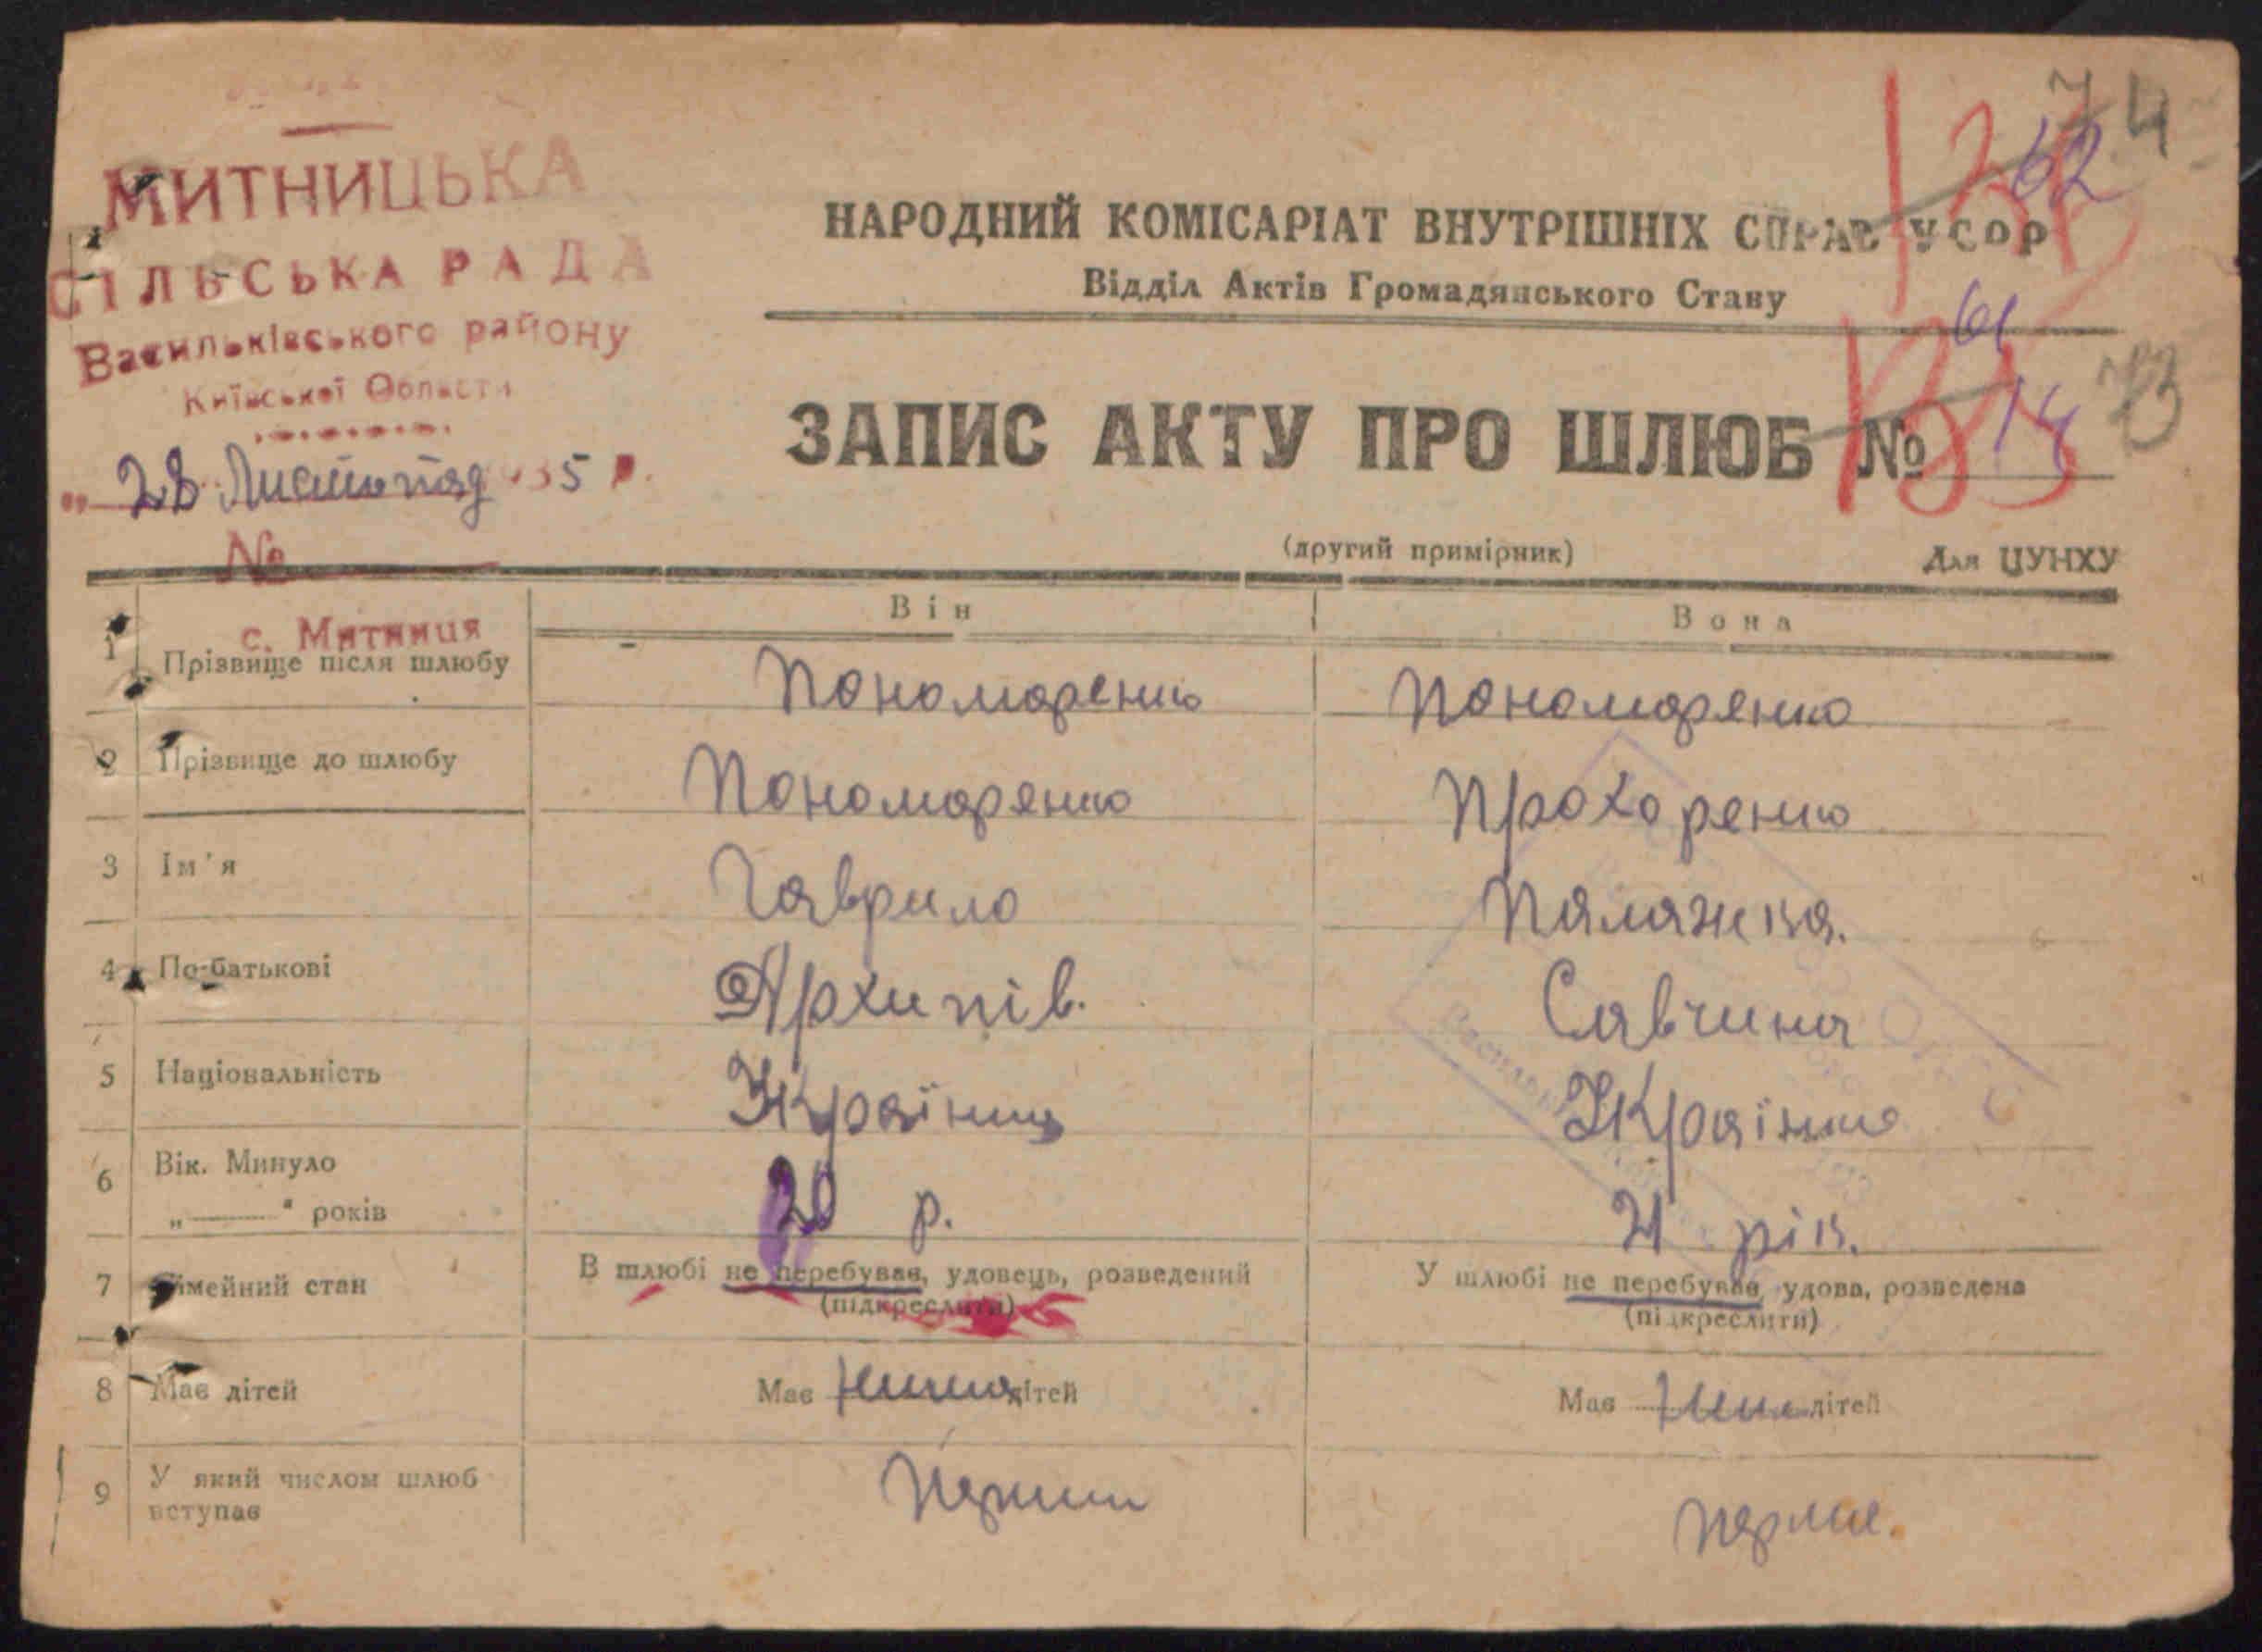 МИТНИЦЬКА
СІЛЬСЬКА РАДА
Васильківського району
Київської Области
„ 28 Листопад 1935 р.
№
с. Митниця
74
62
НАРОДНИЙ КОМІСАРІАТ ВНУТРІШНІХ СПРАВ УСОР
Відділ Актів Громадянського Стану
61
73
ЗАПИС АКТУ ПРО ШЛЮБ № 14
(другий примірник)
Для ЦУНХУ
Він Вона
1 Прізвище після шлюбу Пономаренко Пономаренко
2 Прізвище до шлюбу Пономаренко Прохоренко
3 Ім'я Гаврило Палажка.
4 По-батькові Архипів. Савчина
5 Національність Українець Українка
6 Вік. Минуло
„ " років 20 р. 21 рік.
7 Сімейний стан В шлюбі не перебував, удовець, розведений У шлюбі не перебував, удова, розведена
(підкреслити) (підкреслити)
8 Має дітей Має дітей Має дітей
9 У який числом шлюб
вступає Перший перше.